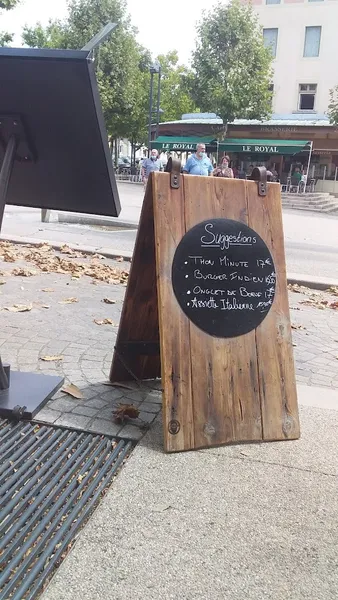 LE ROYAL
BRASSERIE
LE ROYAL
Suggestions
• THON MINUTE 17€
• BURGER INDIEN
• ONGLET DE BOEUF 17€
• Assiette Italienne